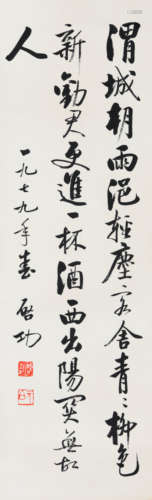 渭城朝雨浥轻尘客舍青〻柳色
新劝君更進一杯酒西出陽关無故
人
一九七九年春 启功